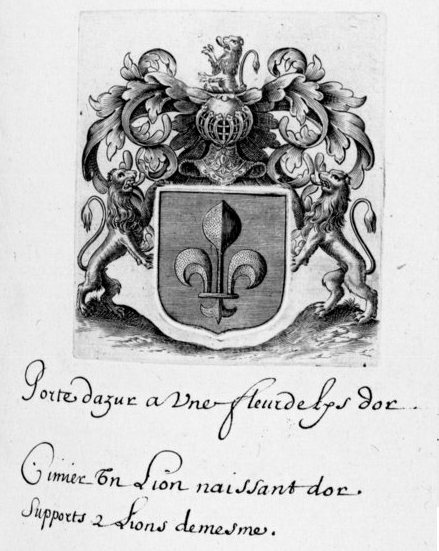 Porte dazur a Une fleurdelys dor.
Cimier Un Lion naissant dor.
Supports 2 Lions demesme.